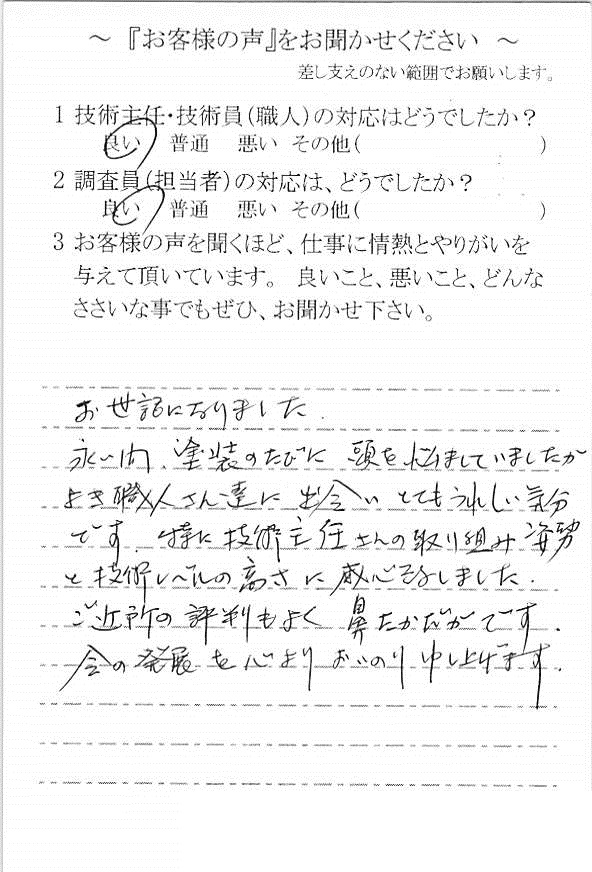 ～『お客様の声』をお聞かせください～
差し支えのない範囲でお願いします。
1 技術主任・技術員(職人)の対応はどうでしたか？
良い 普通 悪い その他( )
2 調査員(担当者)の対応は、どうでしたか？
良い 普通 悪い その他( )
3 お客様の声を聞くほど、仕事に情熱とやりがいを
与えて頂いています。 良いこと、悪いこと、どんな
ささいな事でもぜひ、お聞かせ下さい。
お世話になりました.
永い間、塗装のたびに 頭を悩ましていましたが
よき職人さん達に 出会い とてもうれしい気分
です. 特に技術主任さんの取り組み姿勢
と技術レベルの高さに 感心しました.
ご近所の評判もよく 鼻たかだかです.
会の発展を心より おいのり申し上げます.